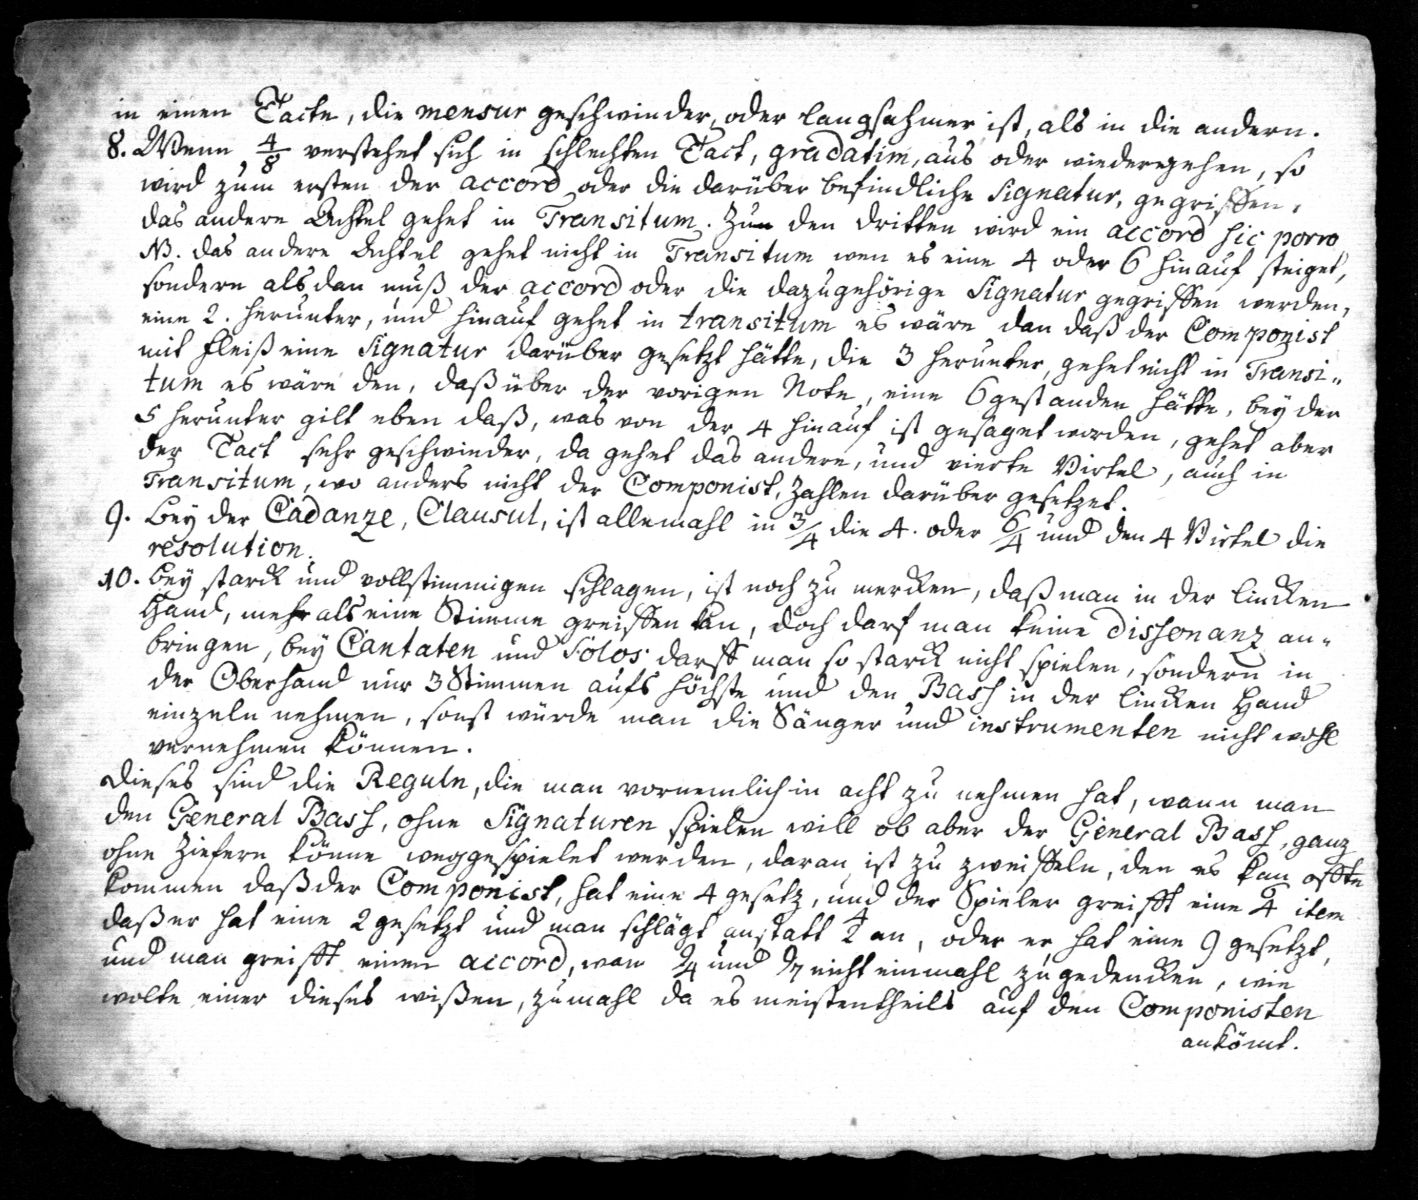 in einen Tacte, die mensur geschwinder, oder langsahmer ist, als in die andern.
8. Wenn 4/8 verstehet sich in schlechten Tact, gradatim, aus oder niedergehen, so
wird zum ersten der accord oder die darüber befindliche Signatur, gegriffen,
das andere Achtel gehet in Transitum. Zum den dritten wird ein accord sic porro
NB. das andere Achtel gehet nicht in Transitum wen es eine 4 oder 6 hinauf steiget,
sondern alsdan muß der accord oder die dazugehörige Signatur gegriffen werden,
eine 2. herunter, und hinauf gehet in transitum es wäre dan daß der Componist
mit Fleiß eine Signatur darüber gesetzt hätte, die 3 herunter, gehet nicht in Transi-
tum es wäre den, daß über der vorigen Note, eine 6 gestanden hätte, bey der
5 herunter gilt eben daß, was von der 4 hinauf ist gesaget worden, gehet aber
der Tact sehr geschwinder, da gehet das andere, und vierte Virtel, auch in
Transitum, wo anders nicht der Componist, Zahlen darüber gesetzet.
9. Bey der Cadanze, Clausul, ist allemahl in 3/4 die 4. oder 6/4 und den 4 Virtel die
resolution.
10. Bey starck und vollstimmigen schlagen, ist noch zu mercken, daß man in der lincken
Hand, mehr als eine Stimme greiffen kan, doch darf man keine dissonanz an-
bringen, bey Cantaten und Solos darff man so starck nicht spielen, sondern in
der Oberhand nur 3 Stimmen aufs höchste und den Bass in der lincken Hand
einzeln nehmen, sonst würde man die Sänger und instrumenten nicht wohl
vernehmen können.
Dieses sind die Reguln, die man vornemlich in acht zu nehmen hat, wann man
den General Bass, ohne Signaturen spielen will ob aber der General Bass, ganz
ohne Ziefern könne weggespielet werden, daran ist zu zweiffeln, den es kan offte
kommen daß der Componist, hat eine 4 gesetz, und der Spieler greifft eine 6/4 item
daß er hat eine 2 gesetzt und man schlägt anstatt 4/2 an, oder er hat eine 9 gesetzt,
und man greifft einen accord, wan 9/4 und 9/7 nicht einmahl zu gedencken, wie
wolte einer dieses wißen, zumahl da es meistentheils auf den Componisten
ankömt.